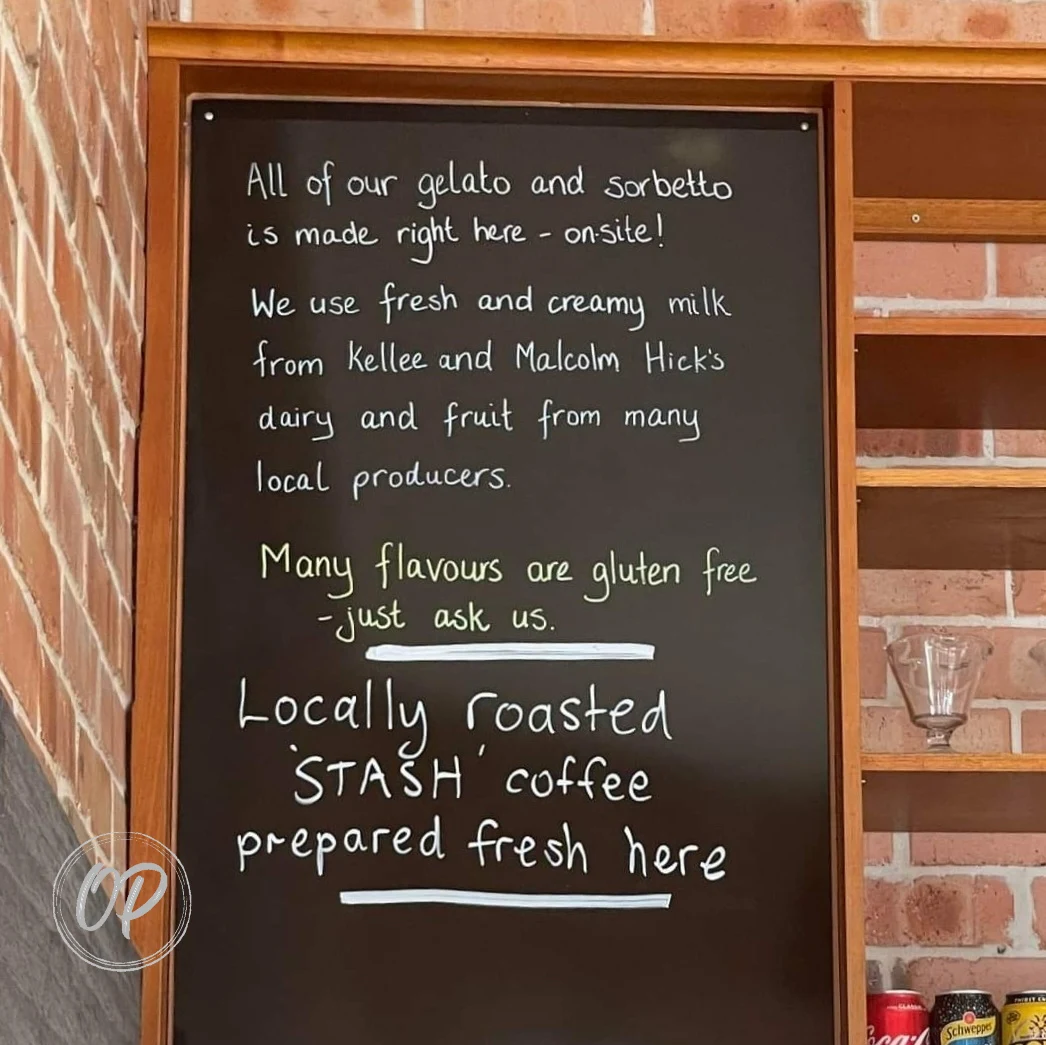 All of our gelato and sorbetto
is made right here - on-site!
We use fresh and creamy milk
from Kellee and Malcolm Hick's
dairy and fruit from many
local producers.
Many flavours are gluten free
- just ask us.
Locally roasted
'STASH' coffee
prepared fresh here
OP
Coca-C
CLASSIC
Schweppes